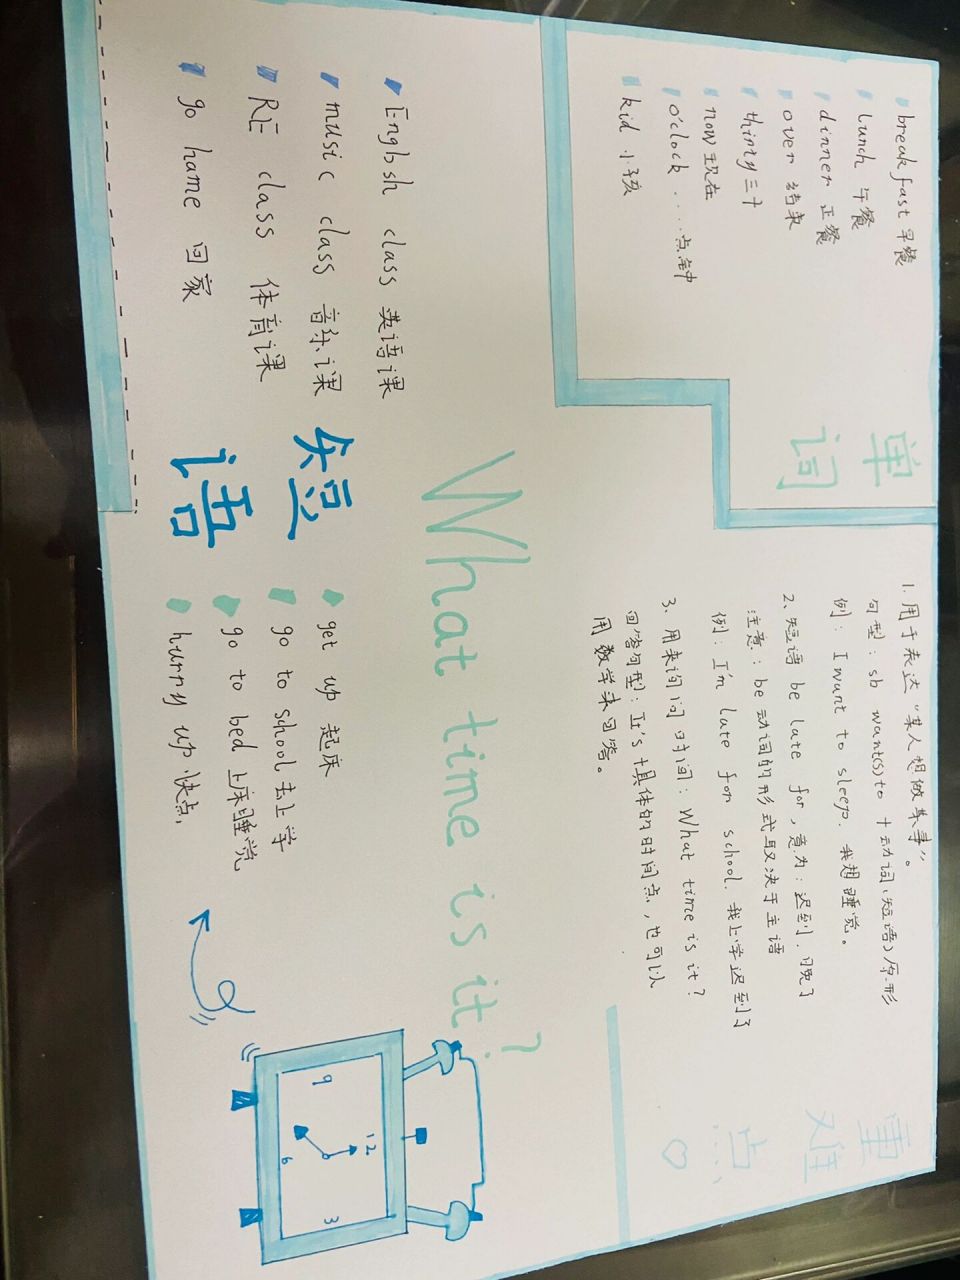 单词
breakfast 早餐
lunch 午餐
dinner 正餐
over 结束
thirty 三十
now 现在
o'clock ....点钟
kid 小孩
重难点...
1. 用于表达“某人想做某事”。
句型: sb want(s) to +动词(短语)原形
例: I want to sleep. 我想睡觉。
2、短语 be late for, 意为: 迟到. 晚了
注意: be 动词的形式取决于主语
例: I'm late for school. 我上学迟到了
3、用来询问时间: What time is it?
回答句型: It's +具体的时间点, 也可以
用数学来回答。
What time is it?
短语
English class 英语课
music class 音乐课
PE class 体育课
go home 回家
get up 起床
go to school 去上学
go to bed 上床睡觉
hurry up 快点,
12
9
3
6